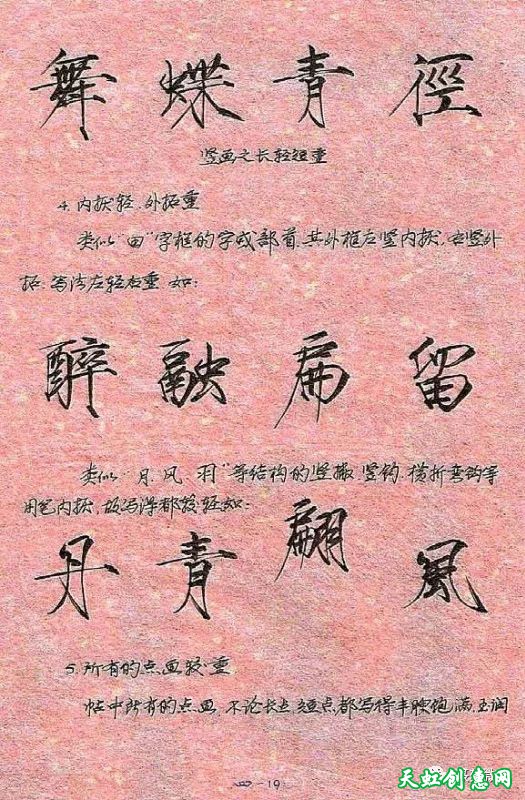 舞蝶青徑
竖画之长轻短重
4.内擫轻.外拓重
类似"由"字框的字或部首,其外框左竖内擫,右竖外
拓.写法左轻右重.如:
醉融扁留
类似"月、风、羽"等结构的竖撇.竖钩.横折弯钩等
用笔内擫,故写得都较轻如:
丹青翩風
5.所有的点画较重
帖中所有的点画,不论长点短点,都写得丰腴饱满.玉润
-19
天虹创意网